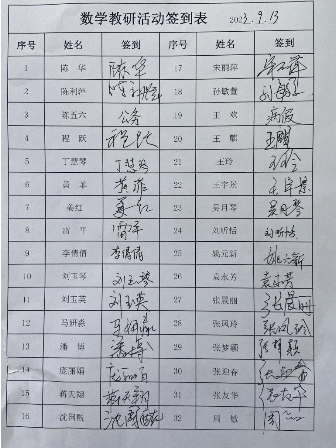 数学教研活动签到表 2023.9.13
序号 姓名 签到 序号 姓名 签到
1 陈华 陈华 17 宋丽萍 宋丽萍
2 陈利萍 18 孙敏萱
3 陈五六 公务 19 王欢 病假
4 程跃 程跃 20 王麒 王麒
5 丁慧琴 丁慧琴 21 王玲 王玲
6 黄菲 黄菲 22 王宇景 王宇景
7 姜红 姜红 23 吴月琴 吴月琴
8 雷平 雷平 24 刘昕恬 刘昕恬
9 李倩倩 李倩倩 25 姚元新 姚元新
10 刘玉琴 刘玉琴 26 袁永芳 袁永芳
11 刘玉英 刘玉英 27 张晨丽
12 马妍淼 28 张凤玲 张凤玲
13 潘婷 潘婷 29 张梦颖 张梦颖
14 庞丽娟 30 张迎春 张迎春
15 蒋天翔 蒋天翔 31 张友华 张友华
16 沈国毓 32 周敏 周敏